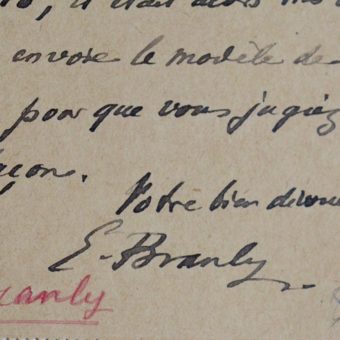 était alors
envoie le modèle de
pour que vous jugiez
açon.
Votre bien dévoué
E. Branly
ranly